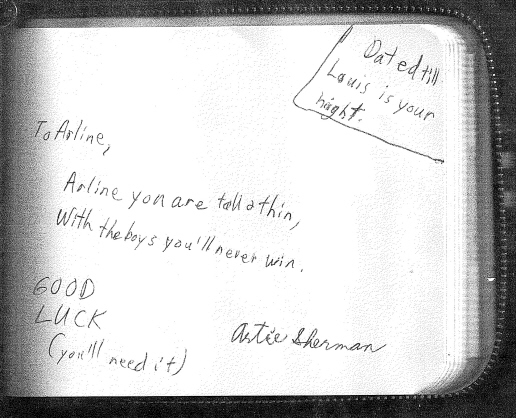 Dated till
Louis is your
hight.
To Arline,
Arline you are tall & thin,
With the boys you'll never win.
GOOD
LUCK
(you'll need it)
Artie Sherman